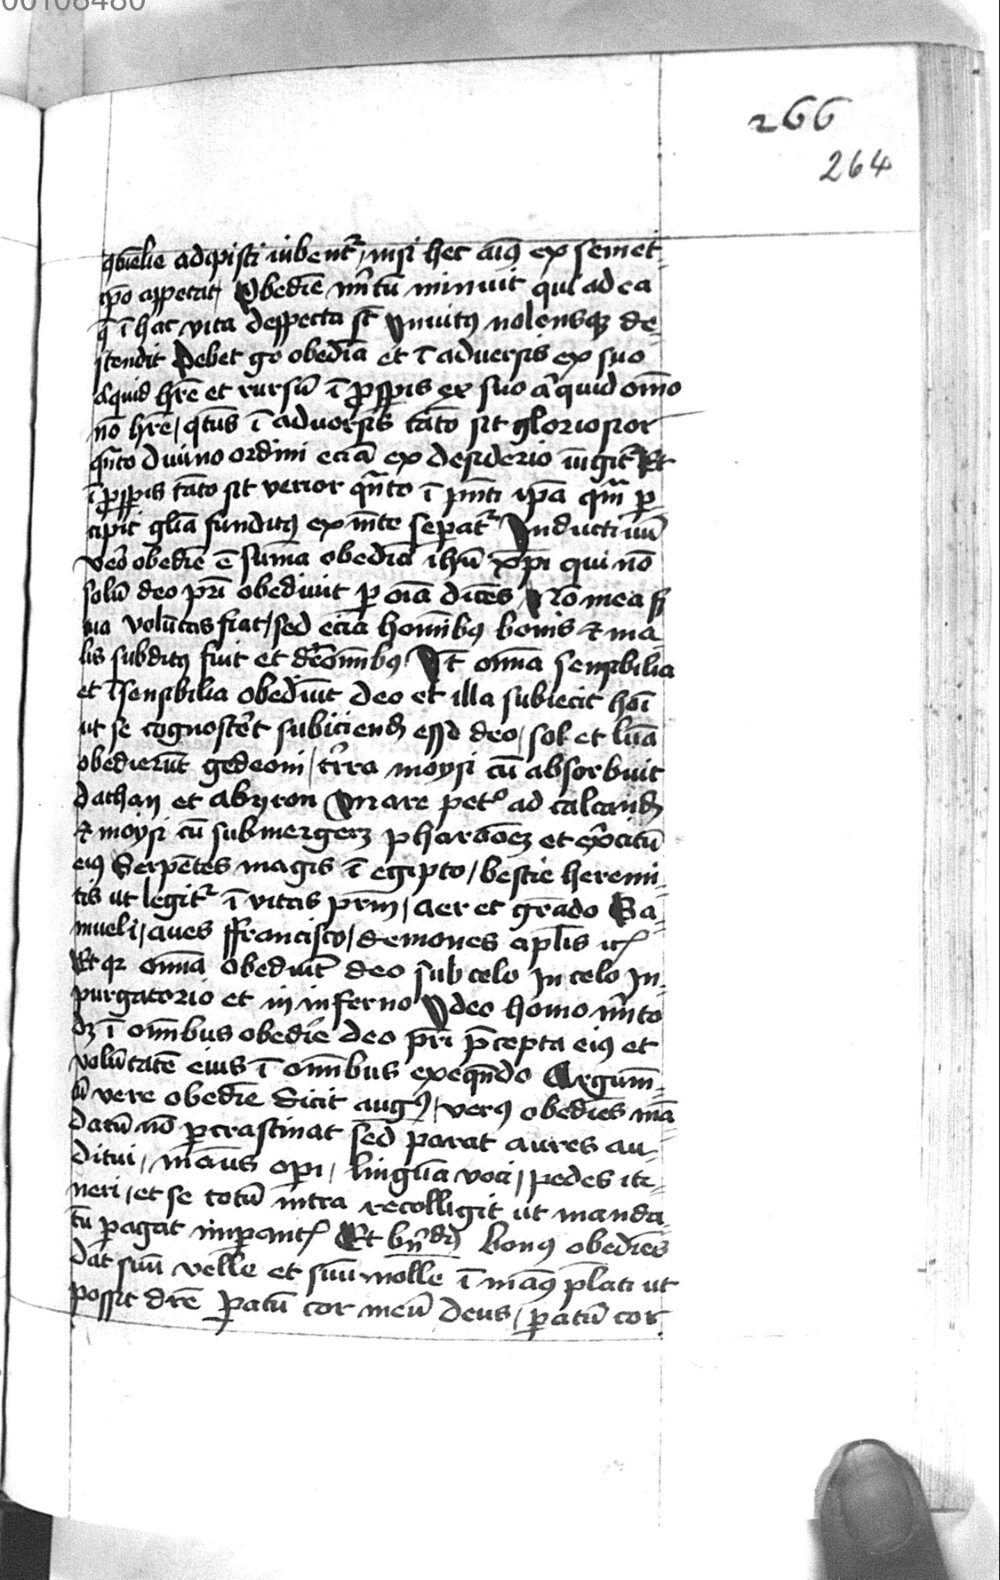 00108480
266
264
adipisci iubent᷑ / nisi hec aīꝰ ex semet
ip̄o appetat / Obedīe m̄rtū minuit qui ad ea
q̄ ī hac vita despecta st̄ Inuitꝰ nolensqꝫ de
scendit Debet go obediā et ī aduersis ex suo
aliquid hr̄e et rursū ī ꝓsꝑis ex suo aliquid om̄o
nō hr̄e / qͣtus ī aduersis tāto sit gloriosior
qn̄to diuino ordini eciā ex desiderio iūgit᷑ Et
ī ꝓsꝑis tāto sit verior qn̄to ī pn̄ti ip̄a quā ꝑ
cipit gl̄ia funditꝰ ex mēte sepat᷑ Inductiuū
vero obedīe ē sum̄a obediā ih̄u xp̄i qui nō
solū deo pr̄i obediuit ꝑ oīa dicēs / Nō mea s
tua volūtas fiat / sed eciā hoīnibꝰ bonis ⁊ ma
lis subditꝰ fuit et om̄ibꝰ / Itē om̄ia sensibilia
et īsensibilia obediūt deo et illa subiecit hoī
ut se cognoscēt subiciend esse deo / sol et luna
obedierūt gedeoni / trra moysi cū absorbuit
dathan et abyron Mare petͦ ad calcand
⁊ moysi cū submergeꝫ pharaōeꝫ et exercitū
eiꝰ Serpētes magis ī egipto / bestie heremi
tis ut legit᷑ ī vitas prm̄ / aer et grādo Sa
mueli / aues ffrancisco / demones aplīs itꝫ
Et qꝫ om̄ia obediūt deo sub celo In celo In
purgatorio et in inferno Ideo homo m̄lto
dꝫ ī om̄ibus obedire deo pr̄i p̄cepta eiꝰ et
volūtatē eius ī om̄ibus exequēdo Argum̄
tū vere obedīe dicit augꝰ / verꝰ obediēs mā
datū nō ꝓcrastinat sed parat aures au
ditui / manus oꝑi / linguā voci / pedes iti
neri / et se totū intra recolligit ut manda
tū ꝑagat imꝑantꝭ Et bn̄dꝰ bonꝰ obediēs
dat suū velle et suū nolle ī manꝰ p̄lati ut
possit dicē Paratū cor meū deus / ꝑatū cor